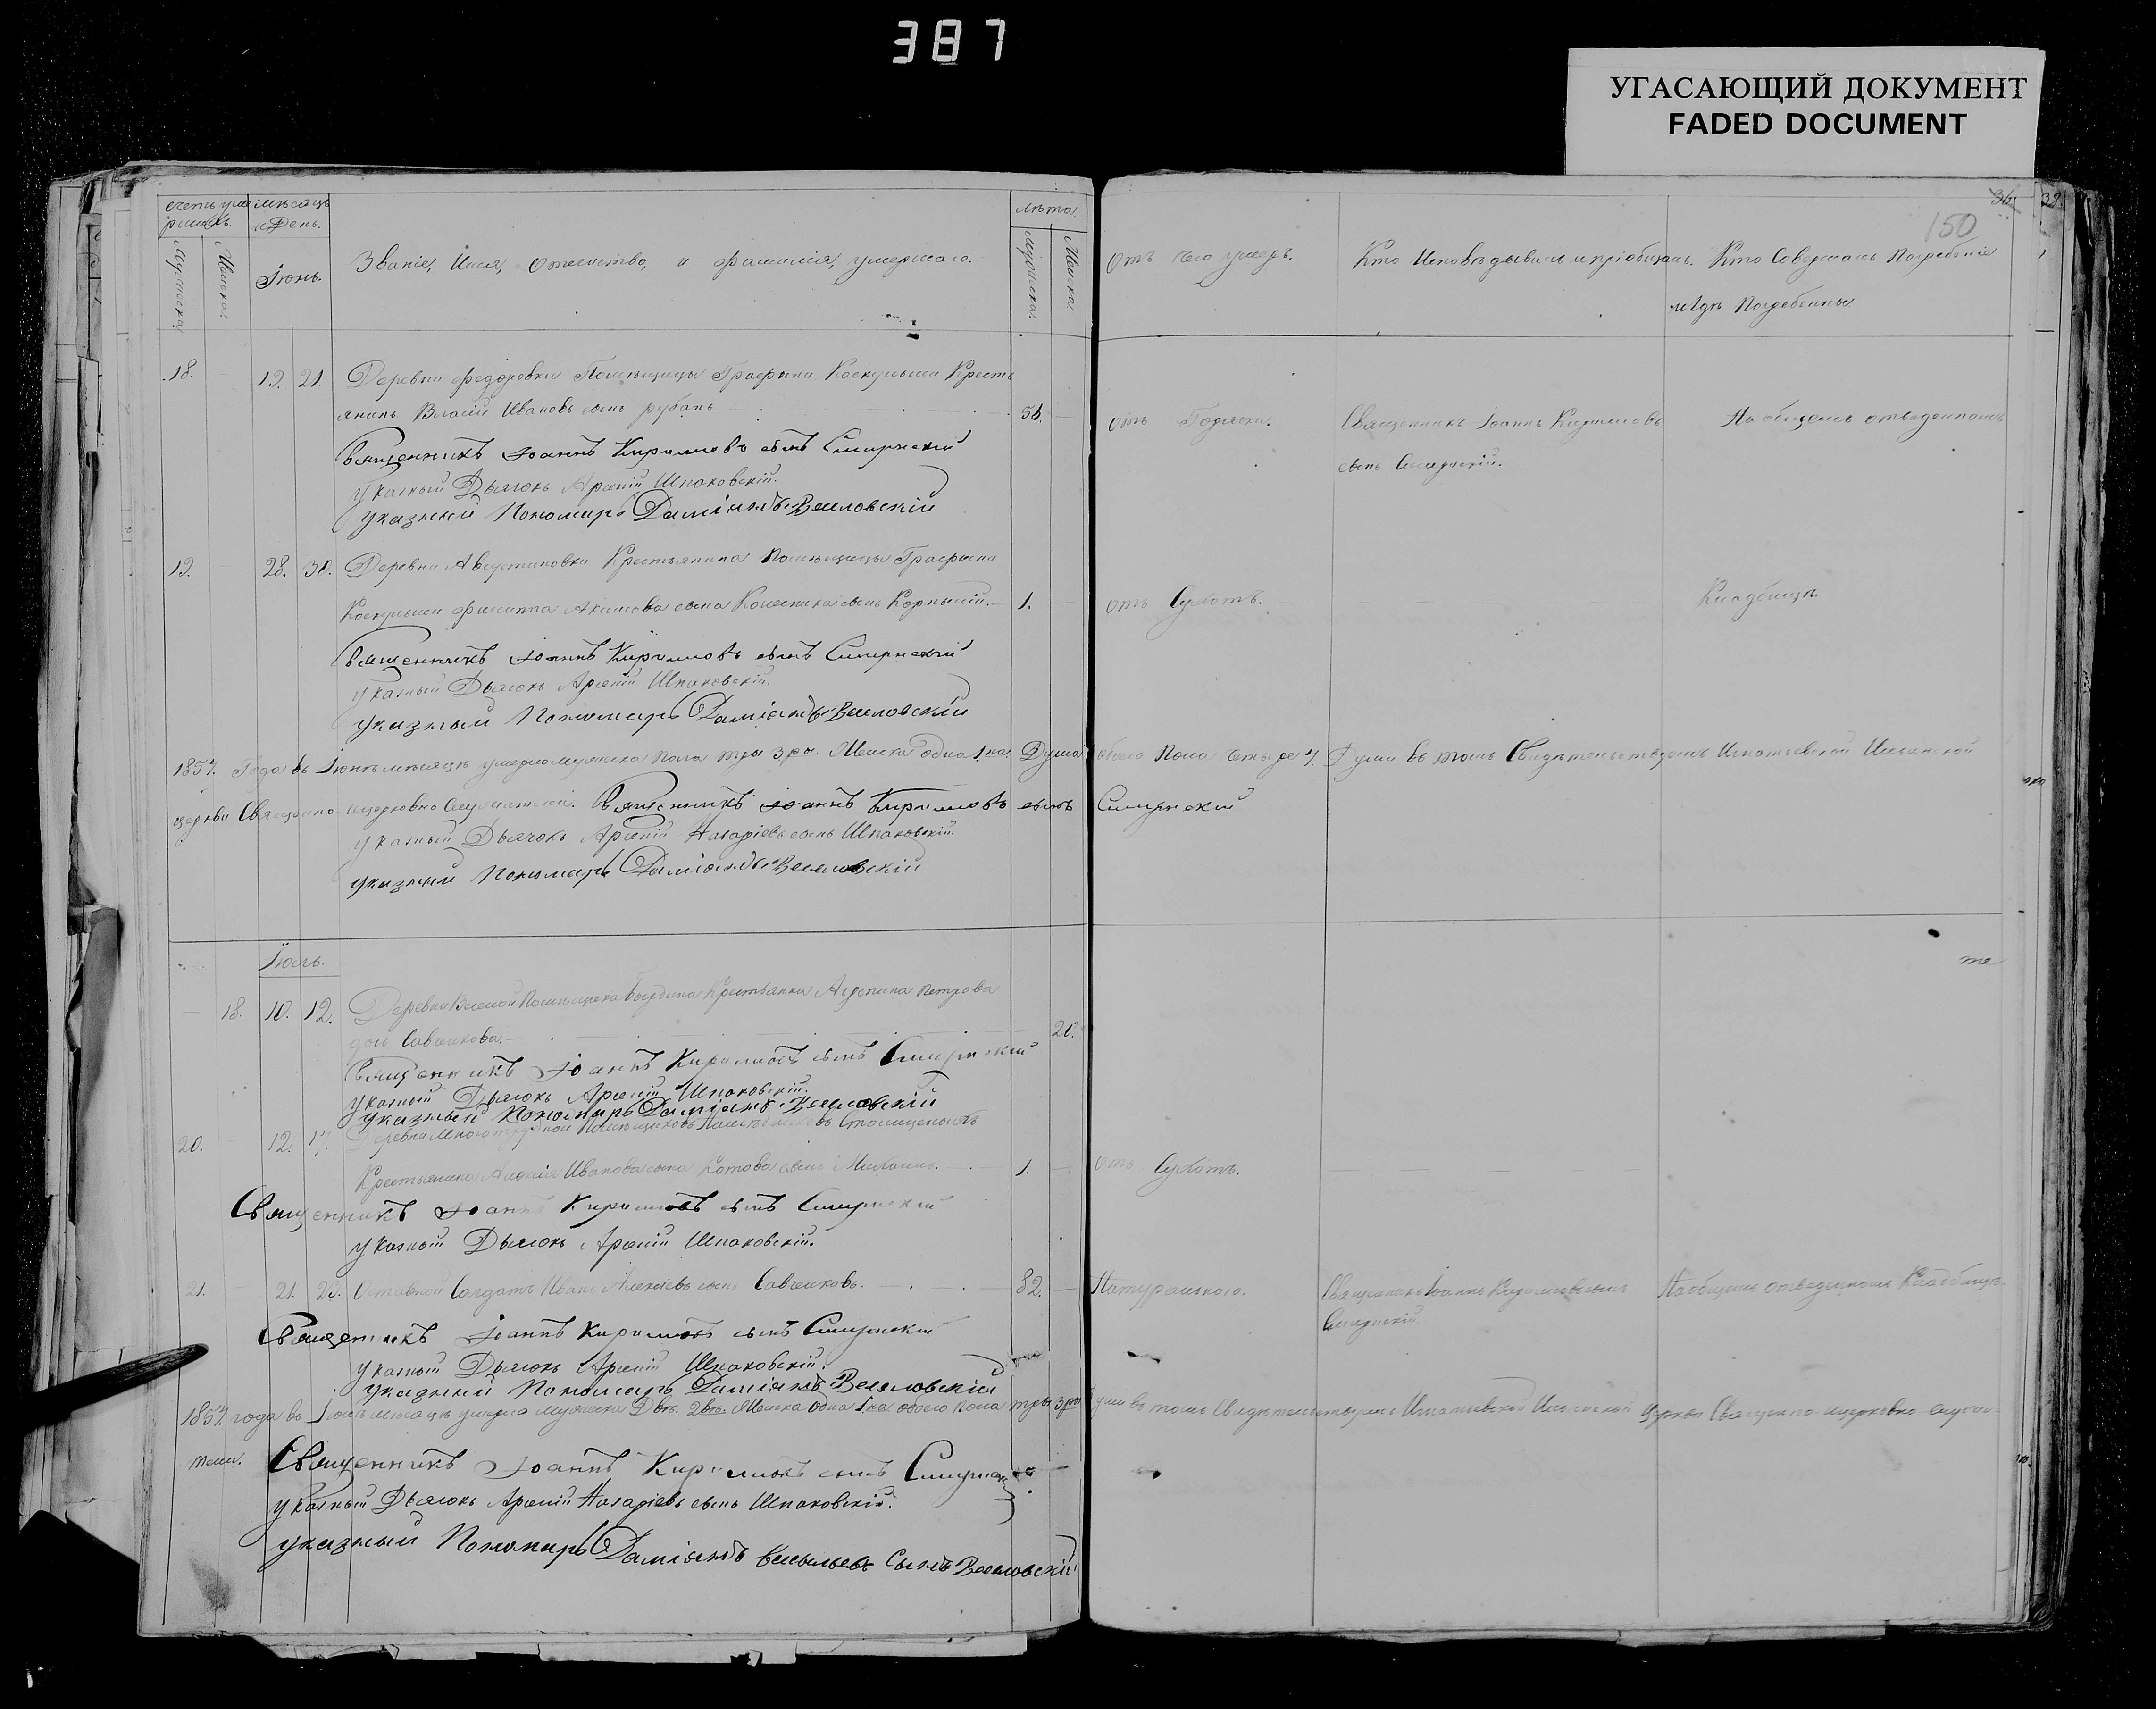 387
УГАСАЮЩИЙ ДОКУМЕНТ
FADED DOCUMENT
36. 32.
150
счетъ уме мѣсяцъ
ршихъ. и День. лѣта.
Мужеска. Женска. Іюнь. Званіе, Имя, Отечество, и Фамилія, умершаго. Мужеска. Женска
отъ чего умеръ. Кто Исповѣдывалъ и пріобщалъ. Кто Совершалъ Погребеніе
и гдѣ Погребенны
18. 19. 21. Деревни Федоровки Помѣщицы Графини Крестья
янинъ Власій Ивановъ сынъ рубанъ. отъ Горячки. Священникъ Іоаннъ Кириловъ На общемъ отведенномъ
сынъ Смирнскій.
Священникъ Іоаннъ Кириловъ сынъ Смирнскій
указный Дьячокъ Арсеній Шпаковскій.
указный Пономарь Даміанъ Веселовскій
19. 28. 30. Деревни Августиновки Крестьянина помѣщицы Графини
Филиппа Акимова сына сынъ Корнылій. 1. отъ Сухотъ. Кладбищѣ.
Священникъ Іоаннъ Кириловъ сынъ Смирнскій
указный Дьячокъ Арсеній Шпаковскій.
указный Пономарь Даміанъ Веселовскій
1857. Года въ Іюнѣ мѣсяцѣ умерло мужеска пола три 3 ри. Женска одна 1. на. Душа обоего Пола четыре 4. Души въ томъ Свидѣтельствуемъ Игнатьевской Ильинской
церкви Священно-церковно Служители. Священникъ Іоаннъ Кириловъ сынъ Смирнскій
указный Дьячокъ Арсеній Назаріевъ сынъ Шпаковскій.
указный Пономарь Даміанъ Веселовскій
Іюль.
18. 10. 12. Деревни Веселой Помѣщика Крестьянка Агрепина Петрова
дочь Савенкова. 20.
Священникъ Іоаннъ Кириловъ сынъ Смирнскій
указный Дьячокъ Арсеній Шпаковскій.
указный Пономарь Даміанъ Веселовскій
20. 12. Деревни Помѣщиковъ
Крестьянина Алексія Иванова сына Котова сынъ 1. отъ Сухотъ.
Священникъ Іоаннъ Кириловъ сынъ Смирнскій
указный Дьячокъ Арсеній Шпаковскій.
21. 21. Отставной Солдатъ Иванъ Алексіевъ сынъ Савенковъ. 82. Натуральною. Священникъ Іоаннъ Кириловъ сынъ На общемъ отведенномъ Кладбищѣ.
Смирнскій
Священникъ Іоаннъ Кириловъ сынъ Смирнскій
указный Дьячокъ Арсеній Шпаковскій.
указный Пономарь Даміанъ Веселовскій
1857 года въ Іюлѣ мѣсяцѣ умерло мужеска Двѣ. 2вѣ. Женска одна 1.на обоего пола три 3 ри Души въ томъ Свидѣтельствуемъ Игнатьевской Ильинской Церкви Священно-церковно-служи-
тели. Священникъ Іоаннъ Кириловъ сынъ Смирнскій
указный Дьячокъ Арсеній Назаріевъ сынъ Шпаковскій.
указный Пономарь Даміанъ Васильевъ Сынъ Веселовскій